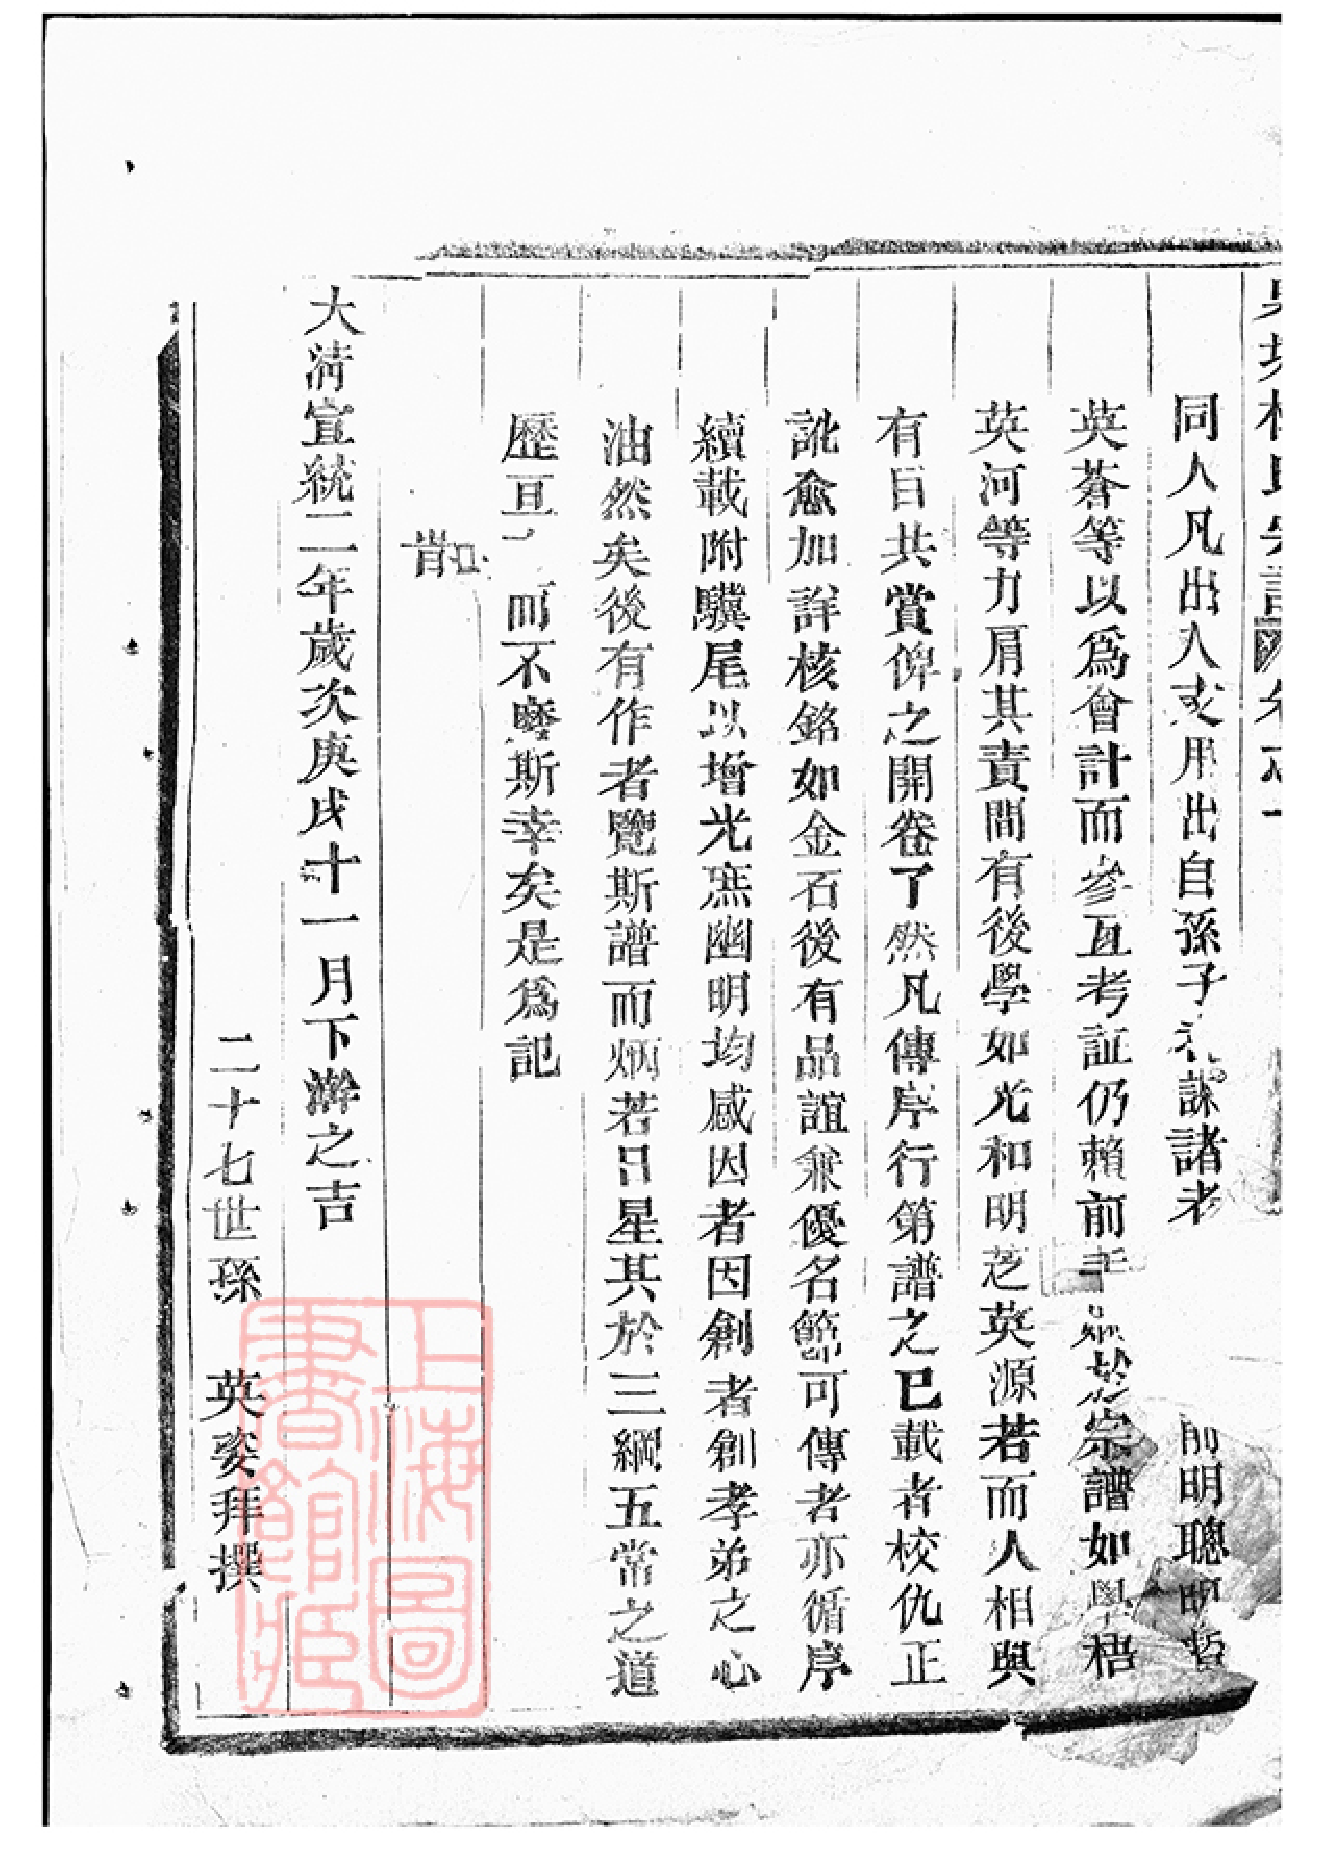 同人凡出入支用出自孫子 課諸老 前明聰明哲
英蒼等以爲會計而參互考証仍賴前 宗譜如學梧
英河等力肩其責間有後學如光和明芝英源若而人相與
有目共賞俾之開卷了然凡傳序行第譜之已載者校仇正
訛愈加詳核銘如金石後有品誼兼優名節可傳者亦循序
續載附驥尾以增光庶幽明均感因者因創者創孝弟之心
油然矣後有作者覽斯譜而炳若日星其於三綱五常之道
歷亘 而不磨斯幸矣是爲記
旹
大淸宣統二年歲次庚戌十一月下澣之吉
二十七世孫 英姿拜撰
上海圖書館藏